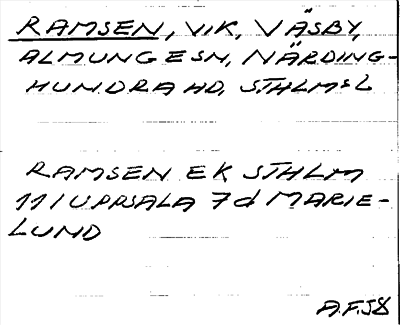 RAMSEN, VIK, VÄSBY,
ALMUNGE SN, NÄRDING-
HUNDRA HD, STHLMS L
RAMSEN EK STHLM
111 UPPSALA 7d MARIE-
LUND